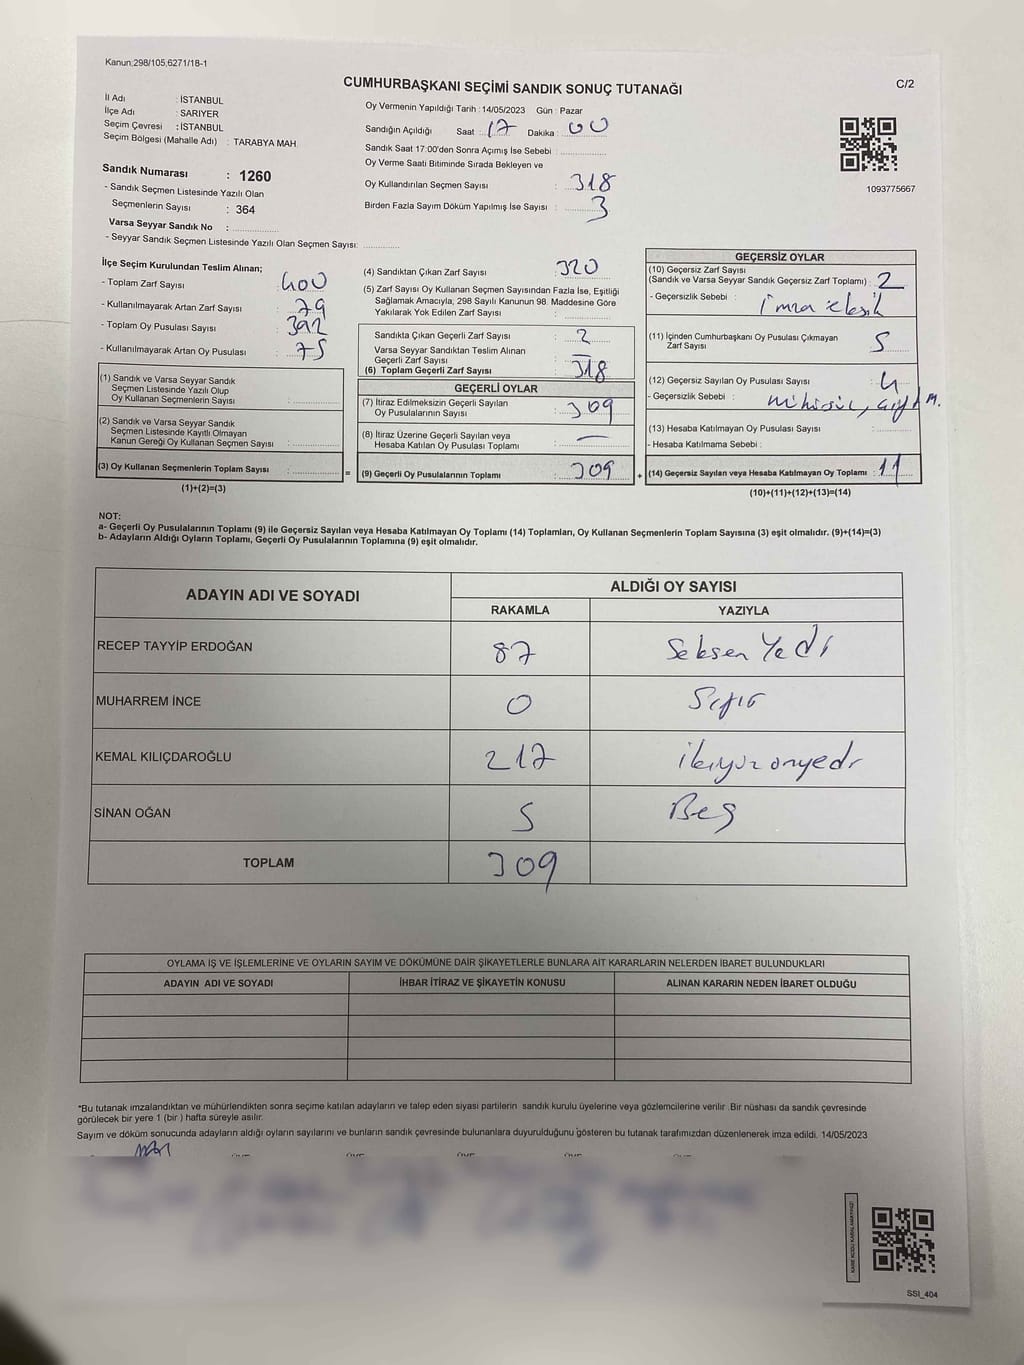 Kanun;298/105,6271/18-1
CUMHURBAŞKANI SEÇİMİ SANDIK SONUÇ TUTANAĞI
C/2
İl Adı : İSTANBUL
İlçe Adı : SARIYER
Seçim Çevresi : İSTANBUL
Seçim Bölgesi (Mahalle Adı) : TARABYA MAH.
Sandık Numarası : 1260
- Sandık Seçmen Listesinde Yazılı Olan
Seçmenlerin Sayısı : 364
Varsa Seyyar Sandık No :
- Seyyar Sandık Seçmen Listesinde Yazılı Olan Seçmen Sayısı:
Oy Vermenin Yapıldığı Tarih : 14/05/2023 Gün : Pazar
Sandığın Açıldığı Saat : 17 Dakika : 00
Sandık Saat 17:00'den Sonra Açımış İse Sebebi :
Oy Verme Saati Bitiminde Sırada Bekleyen ve
Oy Kullandırılan Seçmen Sayısı : 318
Birden Fazla Sayım Döküm Yapılmış İse Sayısı : 3
1093775667
İlçe Seçim Kurulundan Teslim Alınan;
- Toplam Zarf Sayısı : 400
- Kullanılmayarak Artan Zarf Sayısı : 79
- Toplam Oy Pusulası Sayısı : 392
- Kullanılmayarak Artan Oy Pusulası : 75
(1) Sandık ve Varsa Seyyar Sandık
Seçmen Listesinde Yazılı Olup
Oy Kullanan Seçmenlerin Sayısı :
(2) Sandık ve Varsa Seyyar Sandık
Seçmen Listesinde Kayıtlı Olmayan
Kanun Gereği Oy Kullanan Seçmen Sayısı :
(3) Oy Kullanan Seçmenlerin Toplam Sayısı :
(1)+(2)=(3)
(4) Sandıktan Çıkan Zarf Sayısı : 320
(5) Zarf Sayısı Oy Kullanan Seçmen Sayısından Fazla İse, Eşitliği
Sağlamak Amacıyla, 298 Sayılı Kanunun 98. Maddesine Göre
Yakılarak Yok Edilen Zarf Sayısı :
Sandıkta Çıkan Geçerli Zarf Sayısı : 2
Varsa Seyyar Sandıktan Teslim Alınan
Geçerli Zarf Sayısı : —
(6) Toplam Geçerli Zarf Sayısı : 318
GEÇERLİ OYLAR
(7) İtiraz Edilmeksizin Geçerli Sayılan
Oy Pusulalarının Sayısı : 309
(8) İtiraz Üzerine Geçerli Sayılan veya
Hesaba Katılan Oy Pusulası Toplamı : —
= (9) Geçerli Oy Pusulalarının Toplamı : 309
GEÇERSİZ OYLAR
(10) Geçersiz Zarf Sayısı
(Sandık ve Varsa Seyyar Sandık Geçersiz Zarf Toplamı) : 2
- Geçersizlik Sebebi : imza eksik
(11) İçinden Cumhurbaşkanı Oy Pusulası Çıkmayan
Zarf Sayısı : 5
(12) Geçersiz Sayılan Oy Pusulası Sayısı : 4
- Geçersizlik Sebebi : M.
(13) Hesaba Katılmayan Oy Pusulası Sayısı :
- Hesaba Katılmama Sebebi :
+ (14) Geçersiz Sayılan veya Hesaba Katılmayan Oy Toplamı : 11
(10)+(11)+(12)+(13)=(14)
NOT:
a- Geçerli Oy Pusulalarının Toplamı (9) ile Geçersiz Sayılan veya Hesaba Katılmayan Oy Toplamı (14) Toplamları, Oy Kullanan Seçmenlerin Toplam Sayısına (3) eşit olmalıdır. (9)+(14)=(3)
b- Adayların Aldığı Oyların Toplamı, Geçerli Oy Pusulalarının Toplamına (9) eşit olmalıdır.
ADAYIN ADI VE SOYADI
ALDIĞI OY SAYISI
RAKAMLA YAZIYLA
RECEP TAYYİP ERDOĞAN 87 Seksen Yedi
MUHARREM İNCE 0 Sıfır
KEMAL KILIÇDAROĞLU 217 ikiyüz onyedi
SİNAN OĞAN 5 Beş
TOPLAM 309
OYLAMA İŞ VE İŞLEMLERİNE VE OYLARIN SAYIM VE DÖKÜMÜNE DAİR ŞİKAYETLERLE BUNLARA AİT KARARLARIN NELERDEN İBARET BULUNDUKLARI
ADAYIN ADI VE SOYADI İHBAR İTİRAZ VE ŞİKAYETİN KONUSU ALINAN KARARIN NEDEN İBARET OLDUĞU
*Bu tutanak imzalandıktan ve mühürlendikten sonra seçime katılan adayların ve talep eden siyasi partilerin sandık kurulu üyelerine veya gözlemcilerine verilir. Bir nüshası da sandık çevresinde
görülecek bir yere 1 (bir ) hafta süreyle asılır.
Sayım ve döküm sonucunda adayların aldığı oyların sayılarını ve bunların sandık çevresinde bulunanlara duyurulduğunu gösteren bu tutanak tarafımızdan düzenlenerek imza edildi. 14/05/2023
KARE KODU KARALAMAYINIZ!
SSI_404